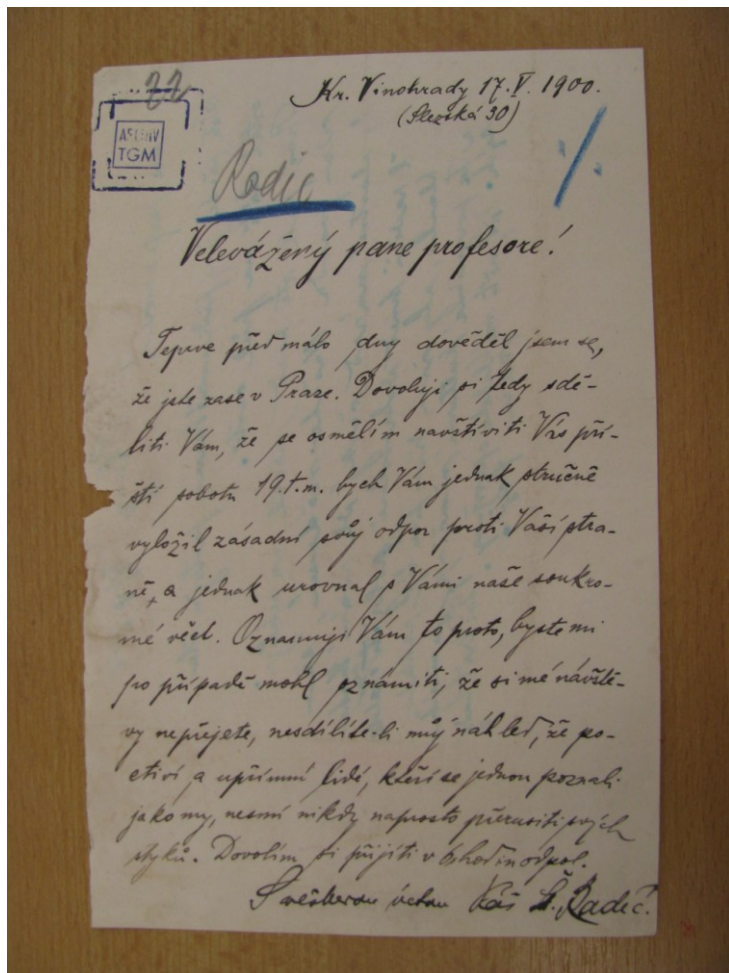 22
Kr. Vinohrady 17.V. 1900.
(Slezská 30)
ARCHIV
TGM
Radić
Velevážený pane profesore!
Teprve před málo dny dověděl jsem se,
že jste zase v Praze. Dovoluji si tedy sdě-
liti Vám, že se osmělím navštíviti Vás pří-
ští sobotu 19.t.m. bych Vám jednak stručně
vyložil zásadní svůj odpor proti Vaší stra-
ně, a jednak urovnal s Vámi naše soukro-
mé věci. Oznamuji Vám to proto, byste mi
po případě mohl oznámiti, že si mé návště-
vy nepřejete, nesdílíte-li můj náhled, že po-
ctiví a upřímní lidé, kteří se jednou poznali
jako my, nesmí nikdy naprosto přerušiti svých
styků. Dovolím si přijíti v odpol.
S veškerou úctou Váš Š. Radić.